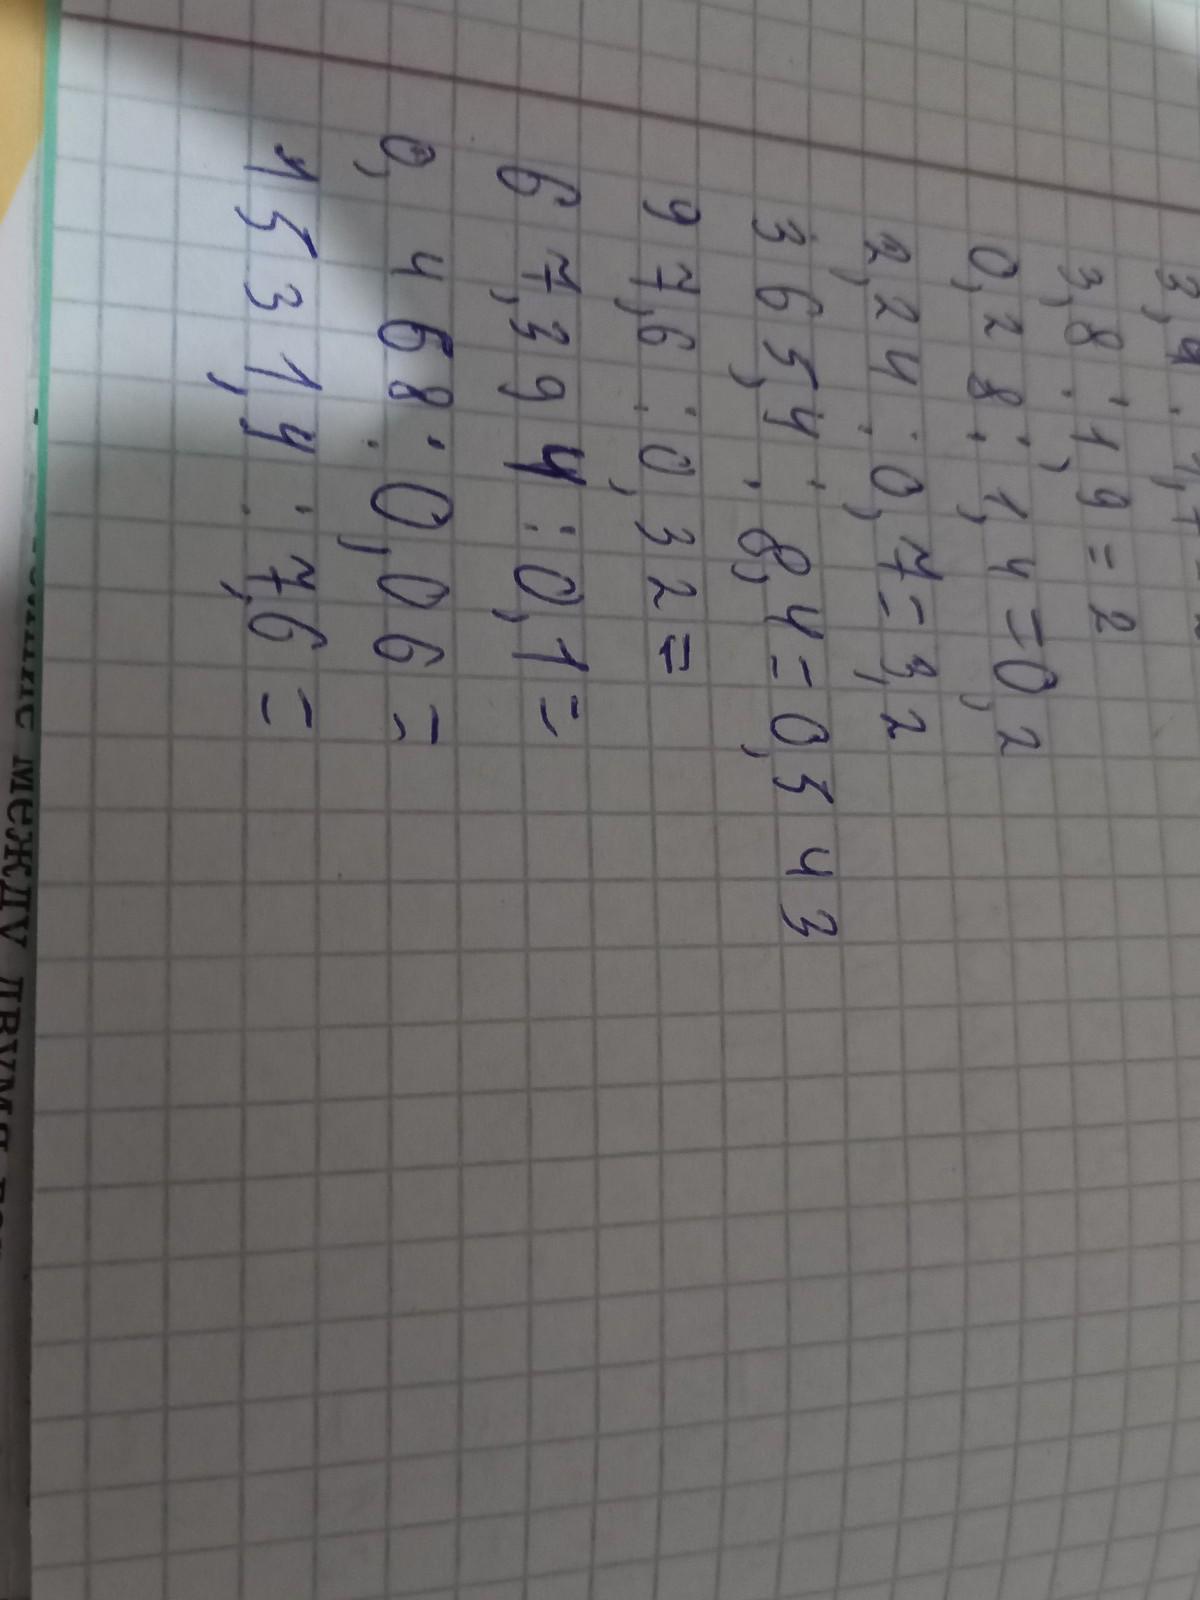 3,8 : 1,9 = 2
0,28 : 1,4 = 0,2
2,24 : 0,7 = 3,2
365,4 : 8,4 = 0,543
97,6 : 0,32 =
67,394 : 0,1 =
0,468 : 0,06 =
1531,4 : 7,6 =
между двумя